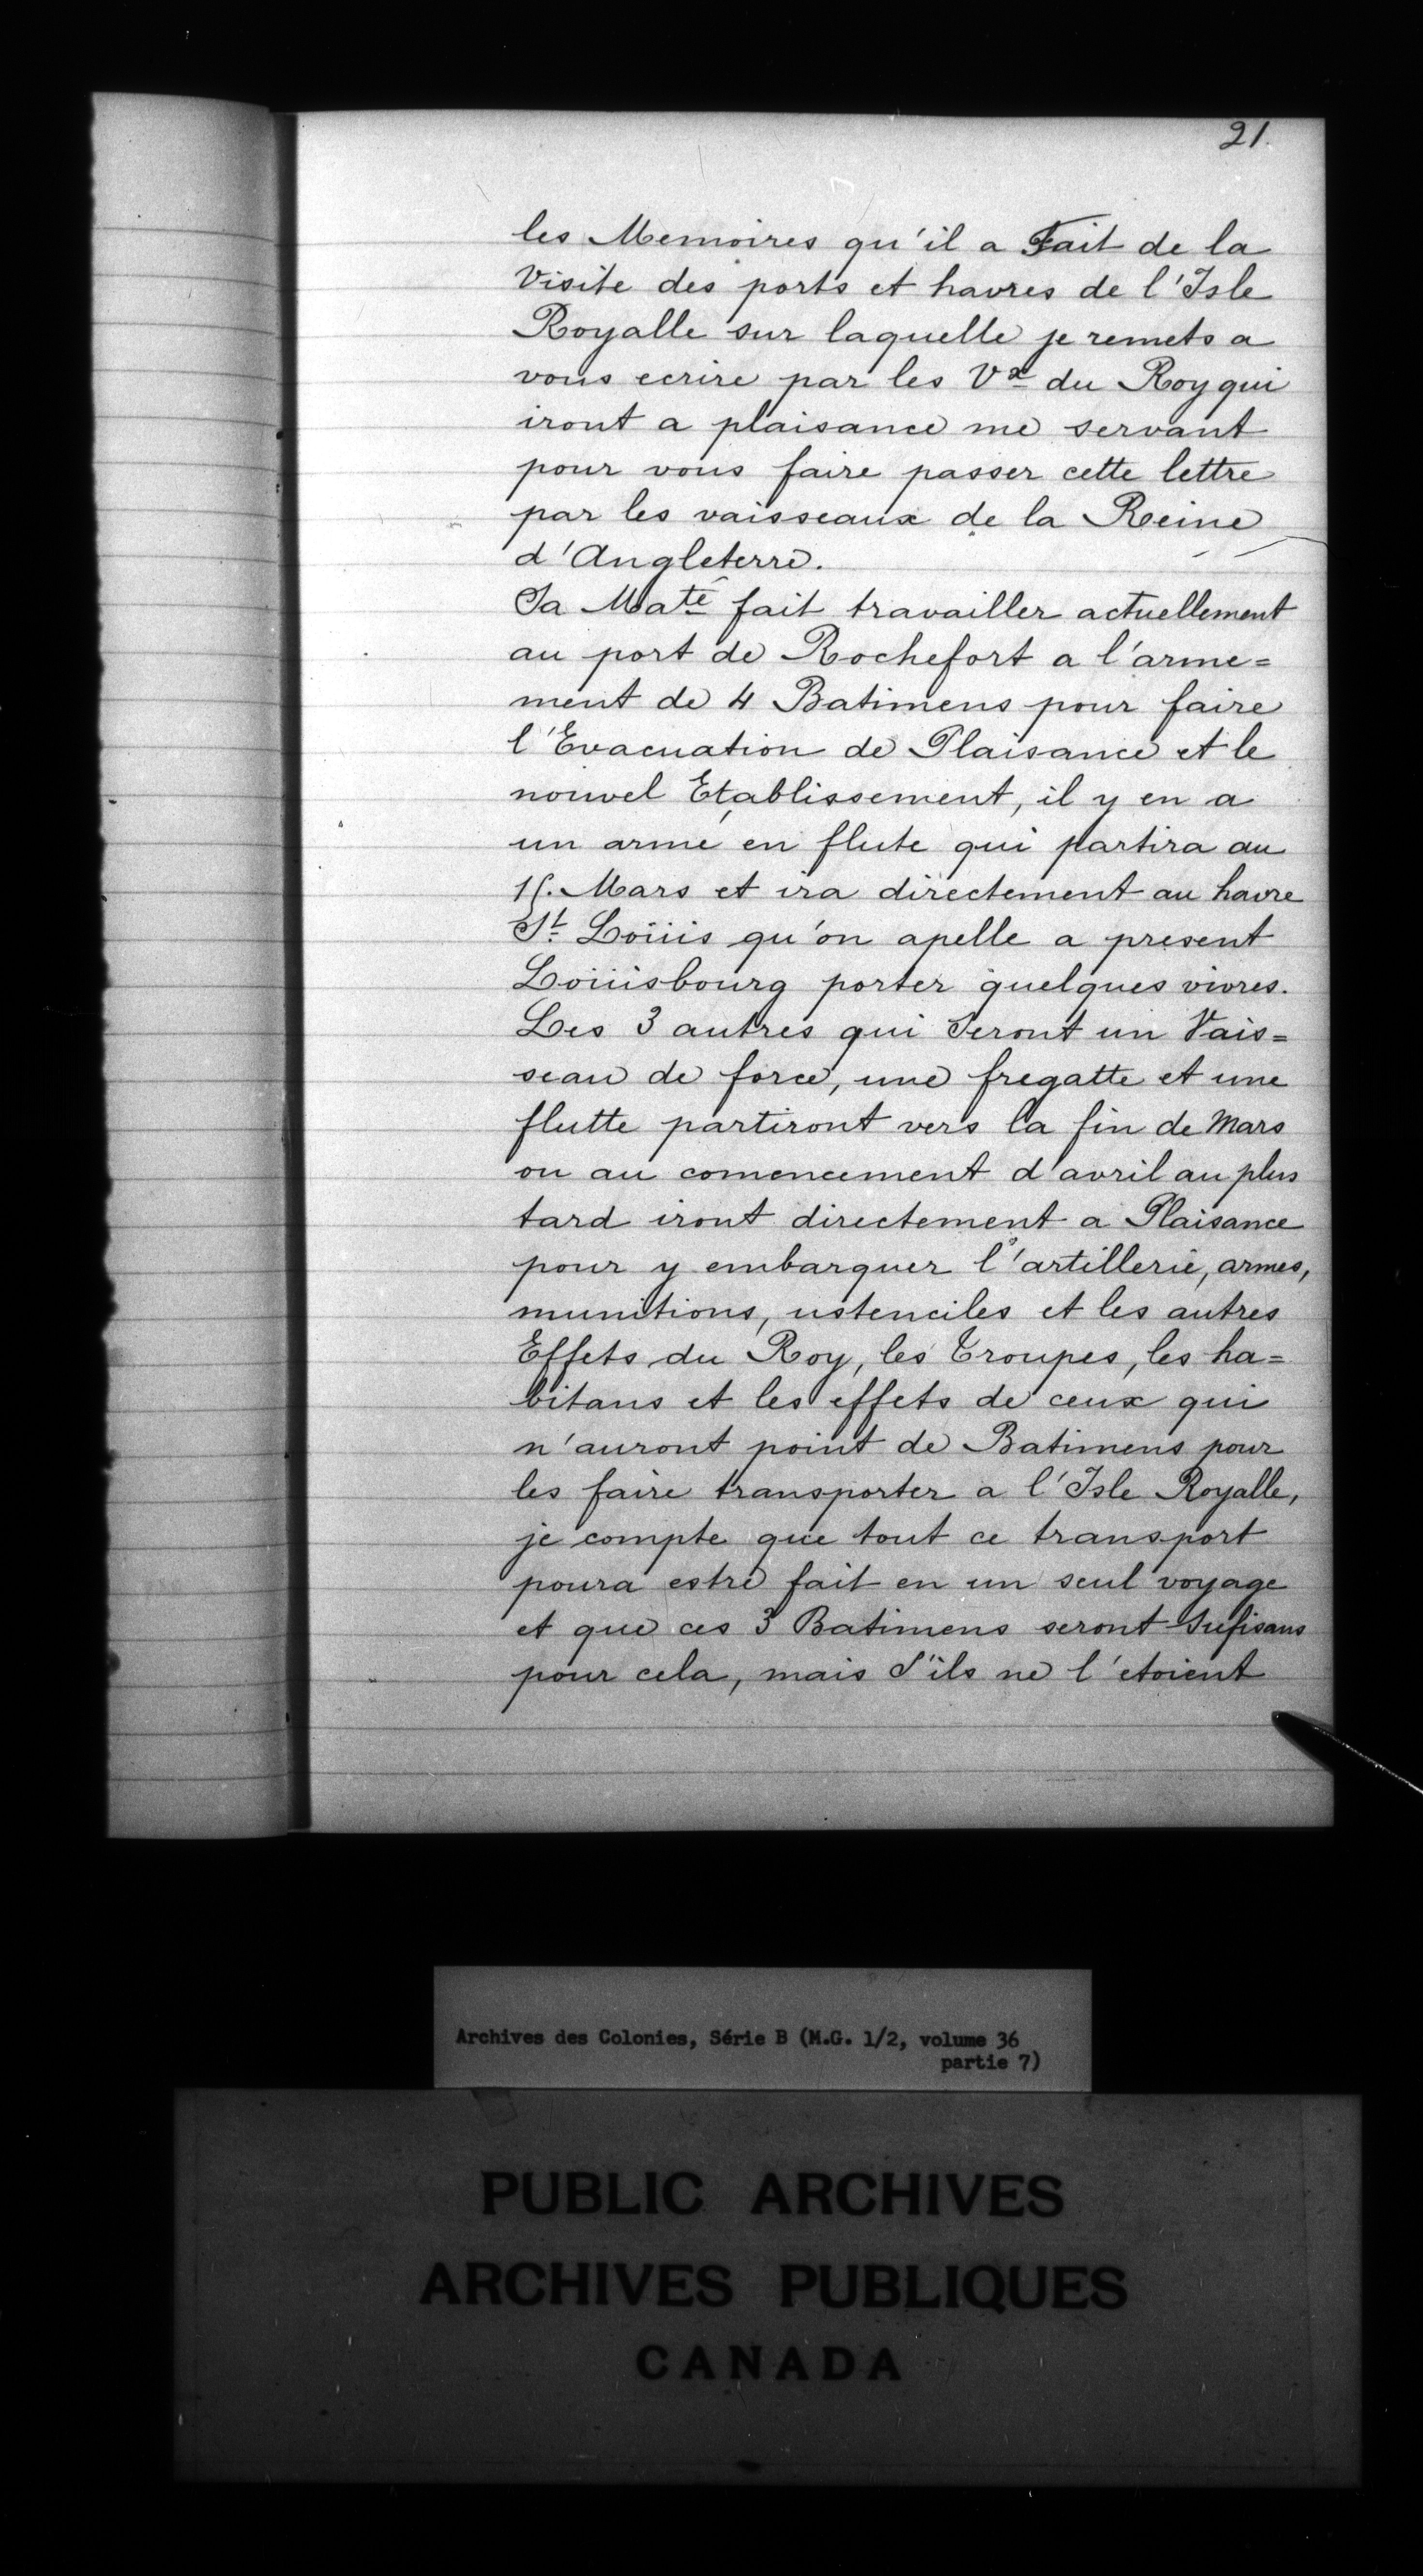 21.
les Memoires qu'il a Fait de la
Visite des ports et havres de l'Isle
Royalle sur laquelle je remets a
vous ecrire par les Vx du Roy qui
iront a plaisance me servant
pour vous faire passer cette lettre
par les vaisseaux de la Reine
d'Angleterre.
Sa Maté fait travailler actuellement
au port de Rochefort a l'arme=
ment de 4 Batimens pour faire
l'Evacuation de Plaisance et le
nouvel Etablissement, il y en a
un armé en flute qui partira au
15. Mars et ira directement au havre
St. Loüis qu'on apelle a present
Loüisbourg porter quelques vivres.
Les 3 autres qui Seront un Vais=
seau de force, une fregatte et une
flutte partiront vers la fin de Mars
ou au comencement d'avril au plus
tard iront directement a Plaisance
pour y embarquer l'artillerie, armes,
munitions, ustenciles et les autres
Effets du Roy, les Troupes, les ha=
bitans et les effets de ceux qui
n'auront point de Batimens pour
les faire transporter a l'Isle Royalle,
je compte que tout ce transport
poura estre fait en un seul voyage
et que ces 3 Batimens seront Sufisans
pour cela, mais S'ils ne l'etoient
Archives des Colonies, Série B (M.G. 1/2, volume 36
partie 7)
PUBLIC ARCHIVES
ARCHIVES PUBLIQUES
CANADA